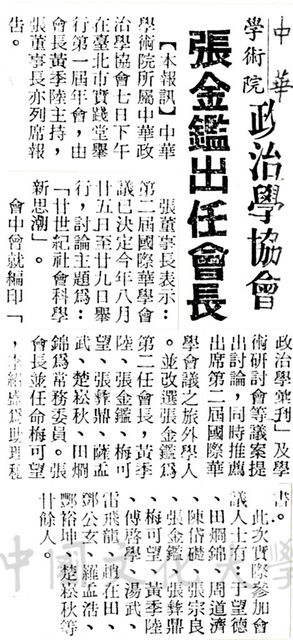 中華
學術院
政治學協會
張金鑑出任會長
【本報訊】中華
學術院所屬中華政
治學協會七日下午
在臺北市實踐堂舉
行第一屆年會，由
會長黃季陸主持，
張董事長亦列席報
告。
張董事長表示：
第二屆國際華學會
議已決定今年八月
廿五日至廿九日舉
行，討論主題爲：
「廿世紀社會科學
新思潮」。
會中曾就編印「
政治學彙刊」及學
術研討會等議案提
出討論，同時推薦
出席第二屆國際華
學會議之旅外學人
。並改選張金鑑爲
第二任會長，黃季
陸、張金鑑、梅可
望、張彝鼎、薩孟
武、楚崧秋、田烱
錦爲常務委員。張
會長並任命梅可望
，李紹盛爲助理秘
書。
此次實際參加會
議人士有：于望德
、田烱錦、周道濟
、陳岱礎、張宗良
、張金鑑、張彝鼎
、梅可望、黃季陸
、傅啓學、湯武、
雷飛龍、趙在田、
鄧公玄、羅孟浩、
酆裕坤、楚崧秋等
廿餘人。
中國文化大學